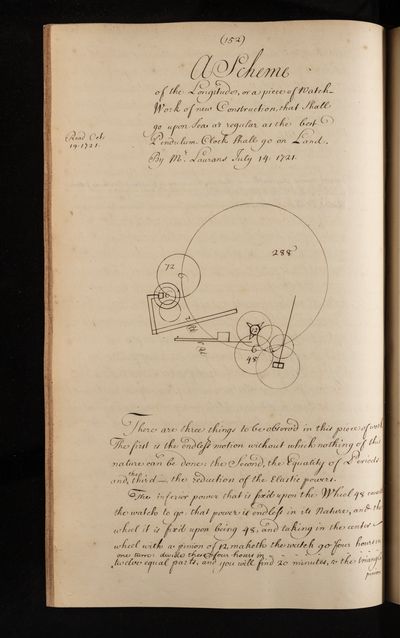 (152)
A Scheme
of the Longitudes, or a piece of Watch-
Work of new Construction, that Shall
go upon Sea as regular as the best
Pendulum Clock Shall go on Land,
By Mr. Laurans July 19: 1721.
Read Oct:
19: 1721.
288
72
12
48
6
There are three things to be observd in this piece of work
The first is the endless motion without which nothing of this
nature can be done; the Second, the Equality of Periods
and, the third – the reduction of the Elastic powers.
The inferior power that is fix'd upon the Wheel 48 causes
the watch to go, that power is endless in its Nature, and the
wheel it is fix'd upon being 48, and taking in the center
wheel with a pinion of 12, maketh the watch go four hours in
one turn: divide these four hours in
twelve equal parts, and you will find 20 minutes, & the triangle